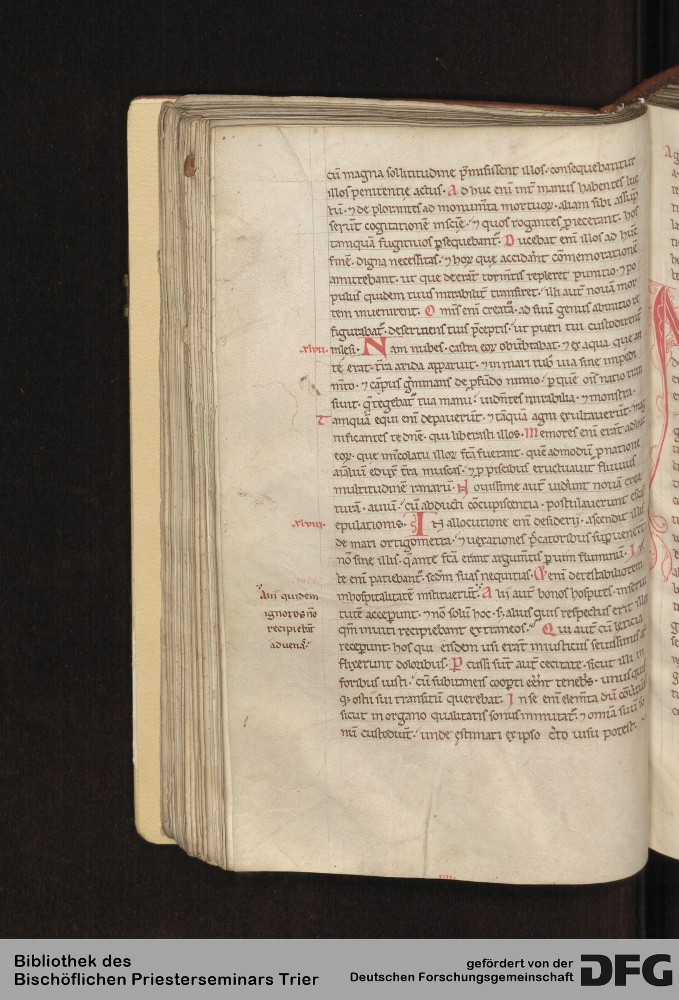 cū magna sollicitudine p̄misissent illos. consequebantur
illos penitentie actus. Ad huc enī int̄ manus habentes luc
tū. ⁊ de plorantes ad monum̄ta mortuoꝝ. aliam sibi assūp
serunt cogitationē inscie. ⁊ quos rogantes p̄iecerant. hos
tamquā fugitiuos ꝑsequebant᷑. Ducebat enī illos ad hūc
finē. digna necessitas. ⁊ hoꝝ que acciderāt cōmemorationē
amittebant. ut que deerāt torm̄tis repleret punitio. ⁊ po
pulus quidem tuus mirabilit̄ transiret. illi aut̄ nouā mor
tem inuenirent. Om̄is enī creat̄a. ad suū genus abinitio re
figurabat᷑. deseruiens tuis p̄ceptis. ut pueri tui custodirent᷑
.xlvii. inlesi. Nam nubes. castra eoꝝ obūbrabat. ⁊ ex aqua que an
te erat. t̄ra arida apparuit. ⁊ in mari rubº uia sine impedi
m̄to. ⁊ cāpus g̃minans de ꝓfūdo nimio. ꝑ quē om̄s natio trans
siuit. q̄ tegebat᷑ tua manu. uidntes mirabilia. ⁊ monstra.
Tamquā equi enī depauerūt. ⁊ tāquā agni exultauerūt. mag
nificantes te dn̄e. qui liberasti illos. Memores enī erāt adhuc
eoꝝ. que incolatu illoꝝ fc̄a fuerant. quē admodū ꝓ natione
aīaliū eduxit t̄ra muscas. ⁊ ꝓ piscibus eructauit fluuius
multitudinē ranarū. Nouissime aut̄ uidert̄ nouā crea
turā. auiū. cū abducti cōcupiscentia. postulauerunt escas
.xlviii. epulationis. In allocutione enī desiderij. ascendit illis
de mari ortigometra. ⁊ uexationes p̄catoribus suꝑuenert̄
nō sine illis. que ante fc̄a erant argum̄tis ꝑ uim fluminū. Ius
te enī patiebant᷑. sc̄dm suas nequitias. Et enī detestabiliorem
inhospitalitatē instituerūt. Alij aut̄ bonos hospites. inserui
tutē accepunt. ⁊ nō solū hoc. s; alius quis respectus erit illoꝝ
qm̄ inuiti recipiebant extraneos. Qui aut̄ cū leticia
recepunt. hos qui eisdem usi erāt iusticiis seuissimis af
flixerunt doloribus. Pcussi sūt aut̄ cecitate. sicut illi in
foribus iusti. cū subitaneis cooꝑti eēnt tenebs̄. unus quis
q; ostii sui transitū querebat. In se enī elem̄ta dū cōuertūt᷑
sicut in organo qualitatis sonus inmutat᷑. ⁊ omīa suū so
nū custodiūt. unde ęstimari ex ipso c̄to uisu potest.
Alii quidem
ignotos nō
recipiebāt
aduenas.
Bibliothek des
Bischöflichen Priesterseminars Trier
gefördert von der
Deutschen Forschungsgemeinschaft
DFG